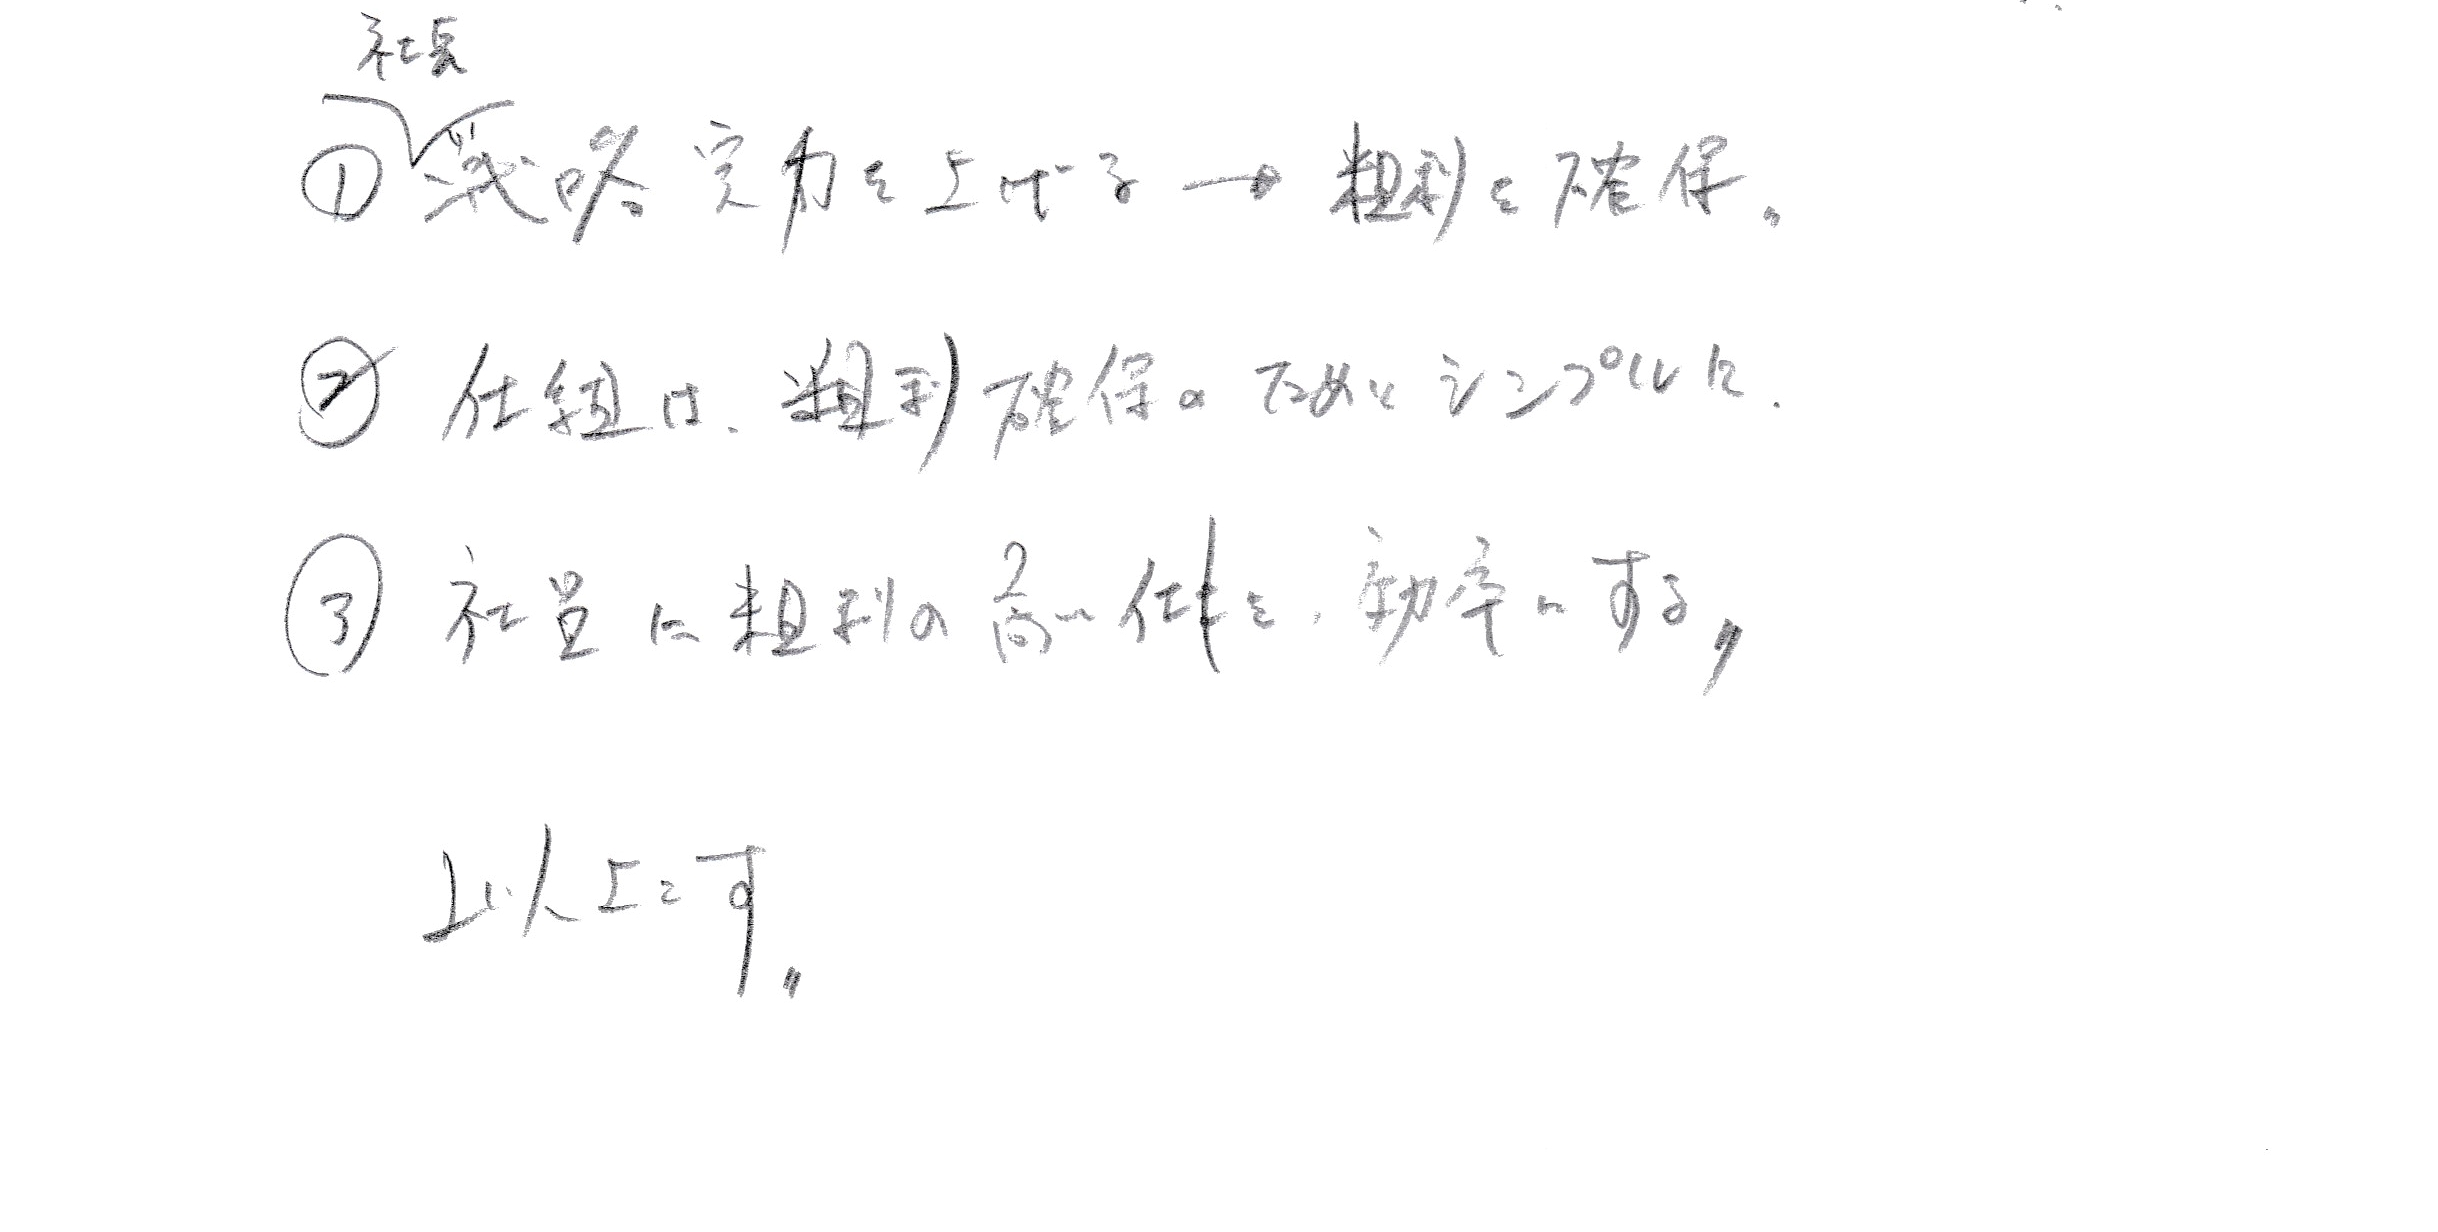 社長
① 戦略実力を上げる → 粗利を確保。
② 仕組は、粗利確保のためにシンプルに.
③ 社員に粗利の高い仕事を、効率にする〃
以上です〃